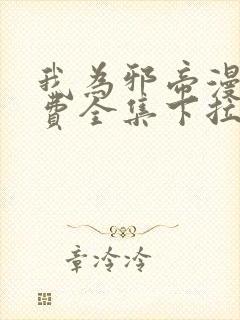 我为邪帝漫
费全集下拉
章冷冷